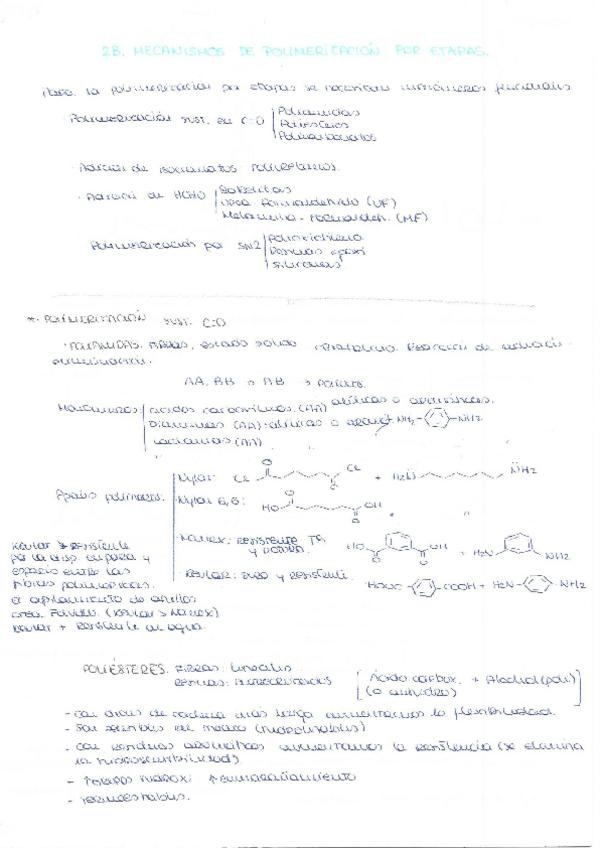 2B. MECANISMOS DE POLIMERIZACIÓN POR ETAPAS.
Para la polimerización por etapas se necesitan monómeros funcionales
Polimerización sust. en C=O | Poliamidas
Poliésteres
Policarbonatos
Adición de isocianatos: Poliuretanos.
Adición de HCHO | Bakelitas
Urea-Formaldehido (UF)
Melamina-Formaldeh. (MF)
Polimerización por SN2
Resinas epoxi
siliconas
*. POLIMERIZACIÓN SUST. C=O
POLIAMIDAS. Fibras, estado sólido cristalino. Reacción de adición-
eliminación.
AA, BB o AB
Monómeros | ácidos carboxílicos (AA) alifáticos o aromáticos.
Diaminas (AA): alifáticas o NH2 NH2
Lactamas (AA)
Nylon: Cl O O Cl + H2N NH2
Apars polímeros Nylon 6,6: HO O O OH "
Nomex: Resistente Tª HO O O OH + H2N NH2
Kevlar: Duro y resistente HOOC COOH + H2N NH2
Kevlar → Resistente
por la disp. en para y
espacio entre las
fibras poliméricas.
El apilamiento de anillos
crea (Kevlar > Nomex)
Kevlar + Resistente al agua.
POLIÉSTERES. FIBRAS: lineales
RESINAS: ENTRECRUZADOS
[Ácido carbox. + Alcohol (poli)
(o anhidro)]
- Con dioles de cadena más larga aumentamos la flexibilidad.
- Son sensibles al medio (hidrolizables)
- Con residuos aromáticos aumentamos la resistencia (se elimina
la
- ↑Grupos hidroxi ↑enmarañamiento
- Termoestables.